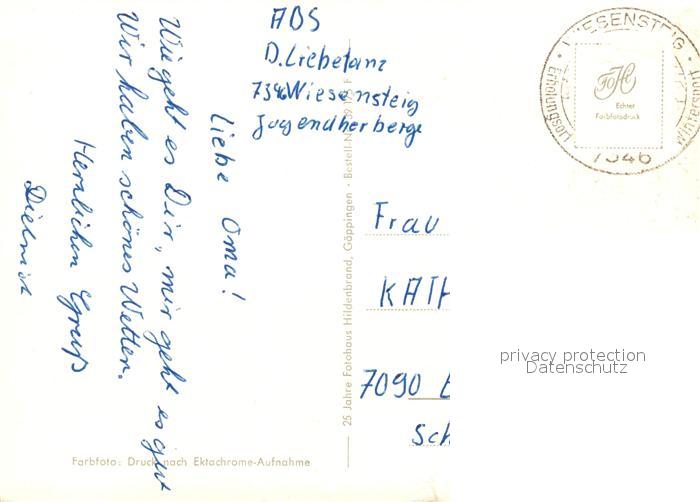 ABS
D. Liebetanz
7346 Wiesensteig
Jugendherberge
Liebe Oma!
Wie geht es Dir, mir geht es gut
Wir haben schönes Wetter.
Herzlichen Gruß
Frau
KATH
7090
Sch
WIESENSTEIG
7346
FoHi
Echter
Farbfotodruck
25 Jahre Fotohaus Hildenbrand, Göppingen · Bestell-Nr.
Farbfoto: Druck nach Ektachrome-Aufnahme
privacy protection
Datenschutz